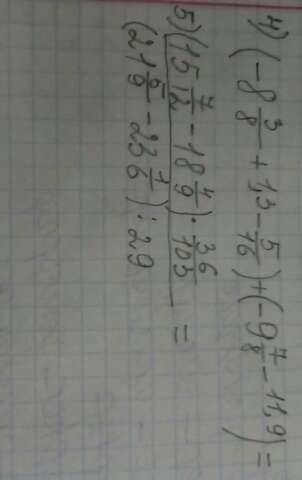 4) (-8 3/8 + 1,3 - 5/16) + (-9 7/8 - 11,9) =
5) (15 7/12 - 18 4/9) · 36/103 =
(21 5/9 - 23 1/6) : 29